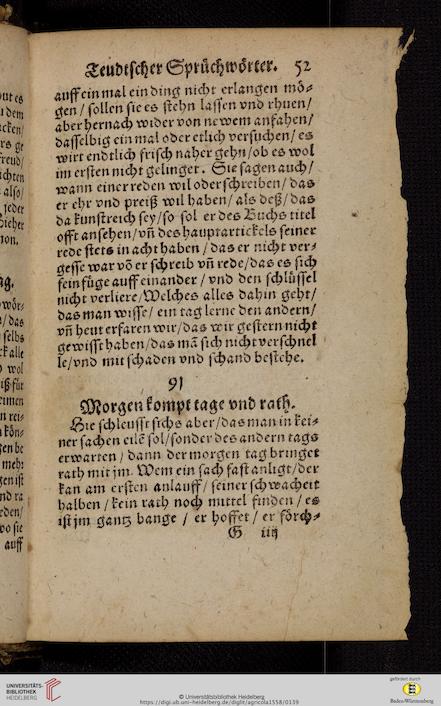 Teudtscher Sprüchwörter. 52
auff ein mal ein ding nicht erlangen mö-
gen / sollen sie es stehn lassen vnd rhuen /
aber hernach wider von newem anfahen /
dasselbig ein mal oder etlich versuchen / es
wirt endtlich frisch naher gehn / ob es wol
im ersten nicht gelinget. Sie sagen auch /
wann einer reden wil oder schreiben / das
er ehr vnd preiß wil haben / als deß / das
da kunstreich sey / so sol er des Buchs titel
offt ansehen / vñ des hauptartickels seiner
rede stets in acht haben / das er nicht ver-
gesse war vō er schreib vñ rede / das es sich
fein füge auff einander / vnd den schlüssel
nicht verliere / Welches alles dahin geht /
das man wisse / ein tag lerne den andern /
vñ heut erfaren wir / das wir gestern nicht
gewisst haben / das mā sich nicht verschnel
le / vnd mit schaden vnd schand bestehe.
91
Morgen kompt tage vnd rath.
Hie schleusst sichs aber / das man in kei-
ner sachen eilē sol / sonder des andern tags
erwarten / dann der morgen tag bringet
rath mit jm. Wem ein sach fast anligt / der
kan am ersten anlauff / seiner schwacheit
halben / kein rath noch mittel finden / es
ist jm gantz bange / er hoffet / er förch-
G iiij
ag.
auff
UNIVERSITÄTS-
BIBLIOTHEK
HEIDELBERG
© Universitätsbibliothek Heidelberg
https://digi.ub.uni-heidelberg.de/diglit/agricola1558/0139
gefördert durch
Baden-Württemberg